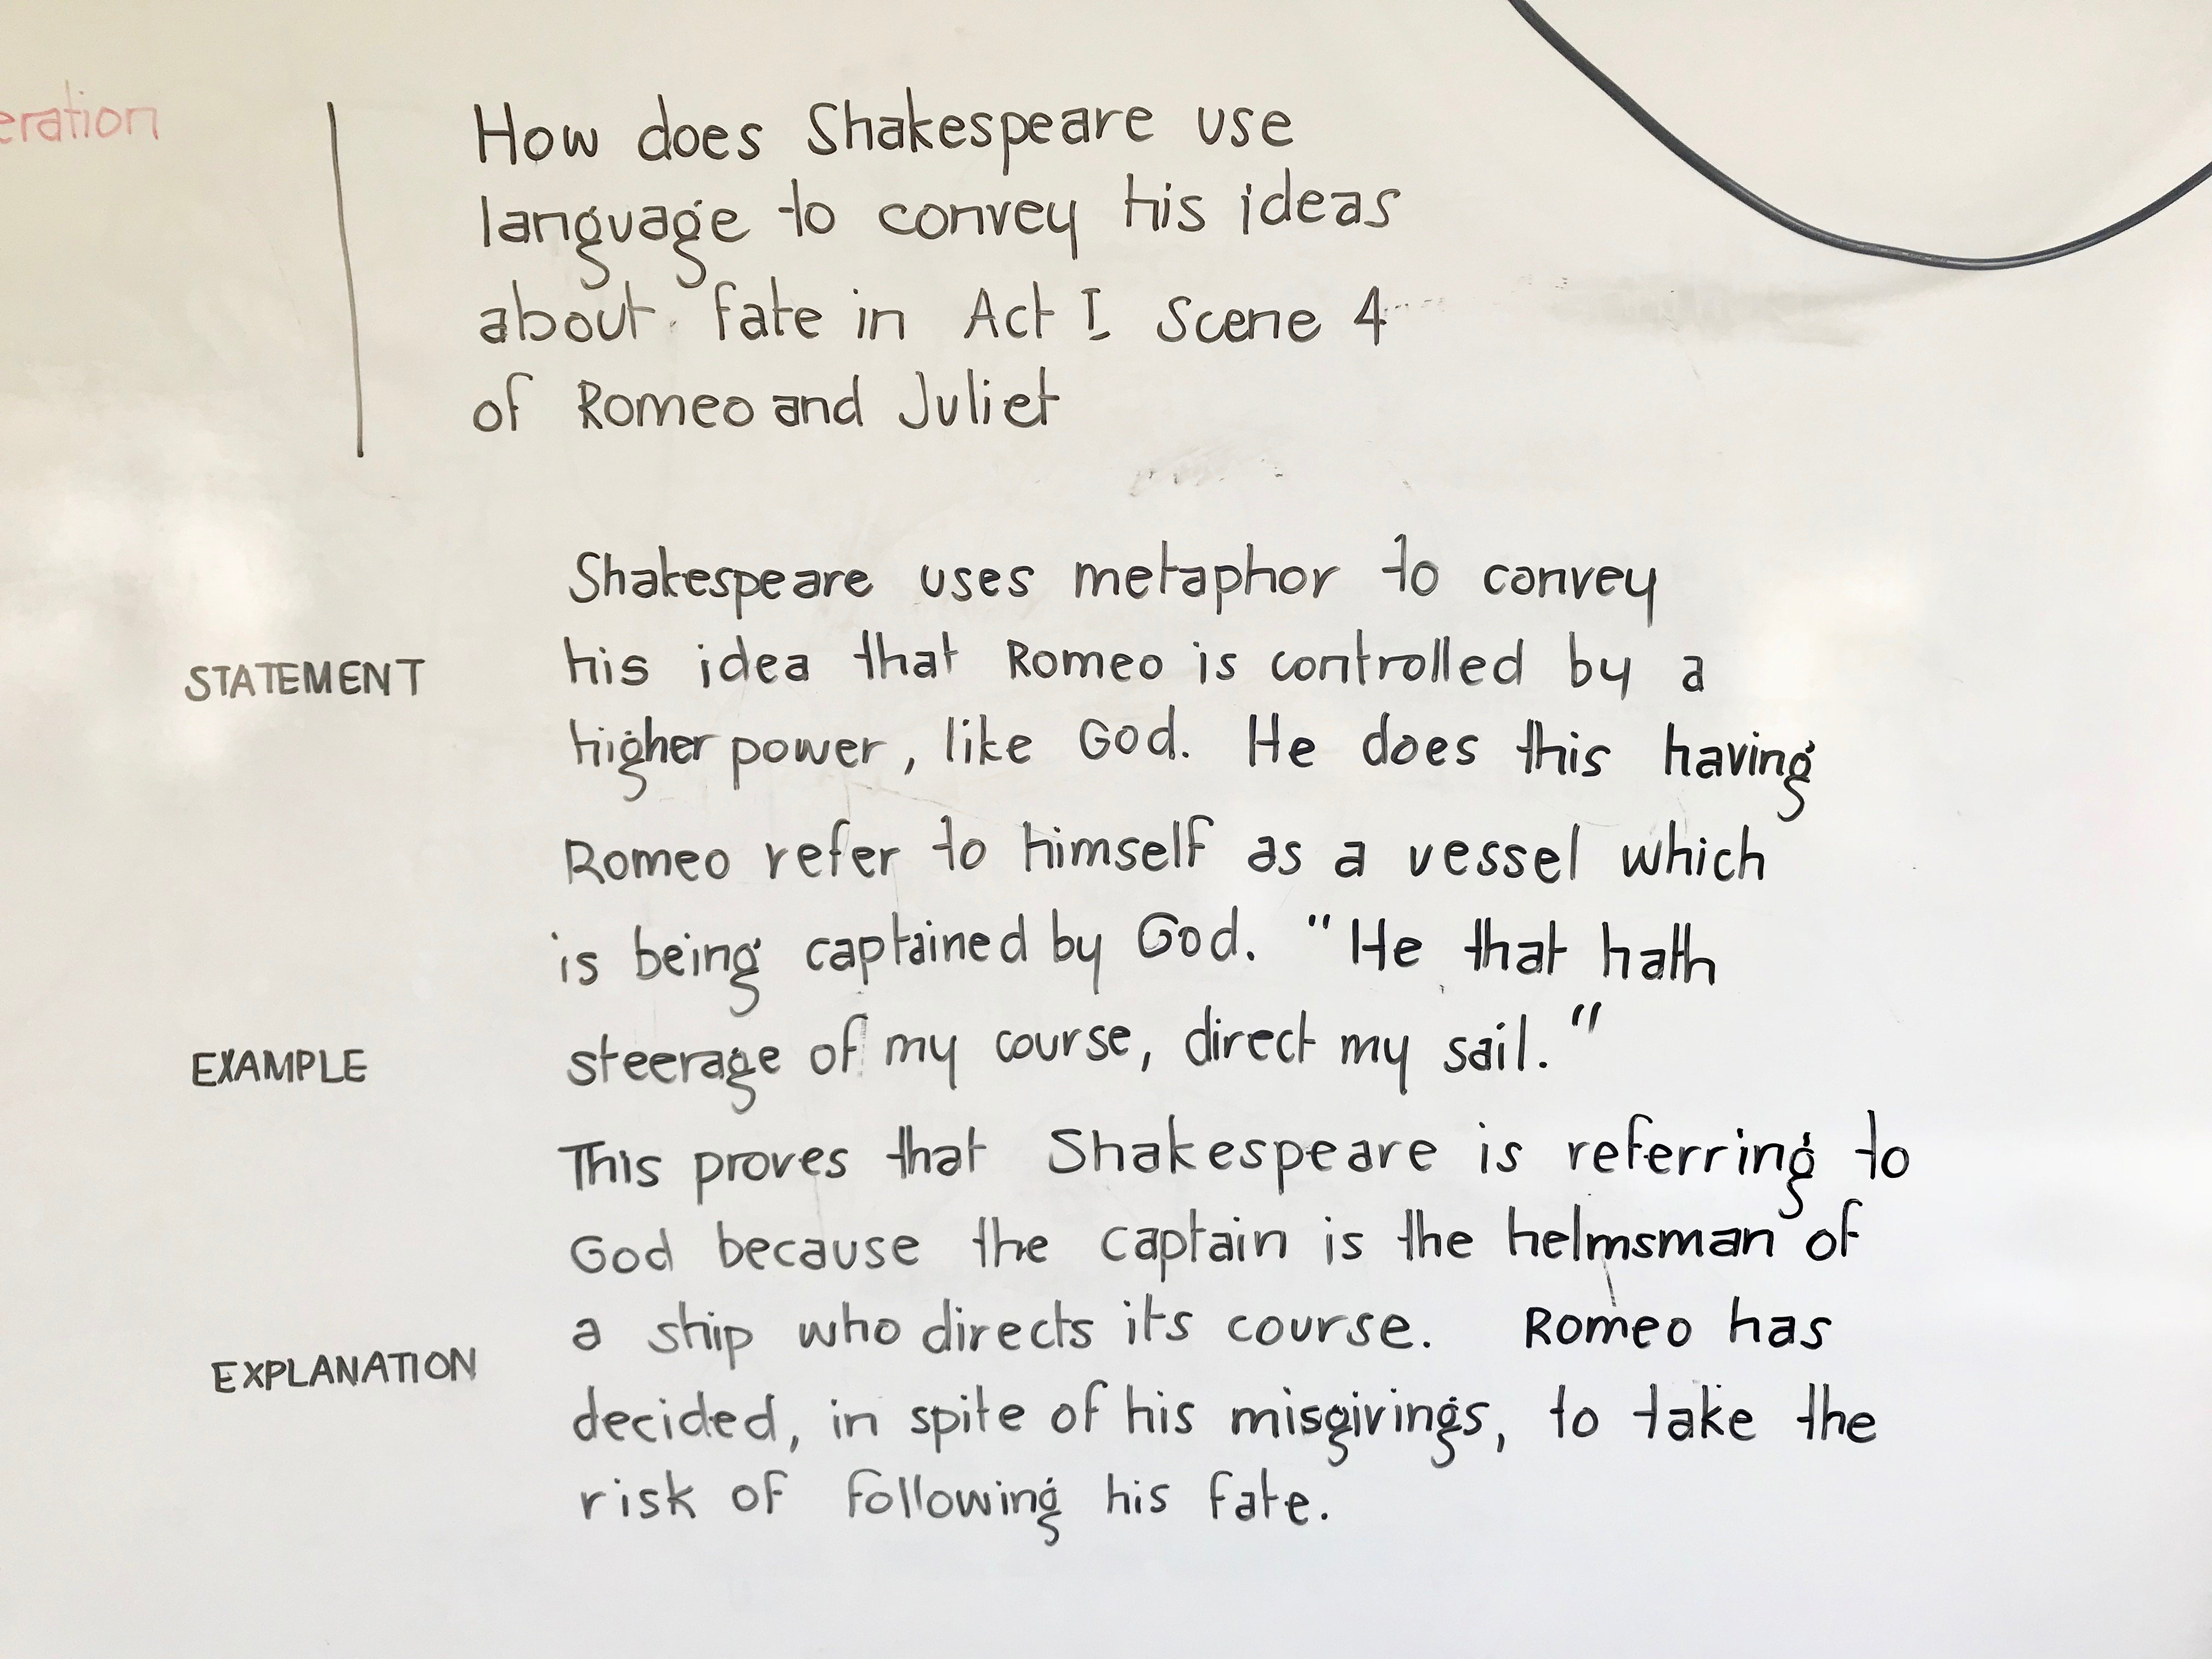 eration
How does Shakespeare use
language to convey his ideas
about fate in Act I Scene 4
of Romeo and Juliet
Shakespeare uses metaphor to convey
STATEMENT his idea that Romeo is controlled by a
higher power, like God. He does this having
Romeo refer to himself as a vessel which
is being captained by God. "He that hath
EXAMPLE steerage of my course, direct my sail."
This proves that Shakespeare is referring to
God because the captain is the helmsman of
a ship who directs its course. Romeo has
EXPLANATION
decided, in spite of his misgivings, to take the
risk of following his fate.